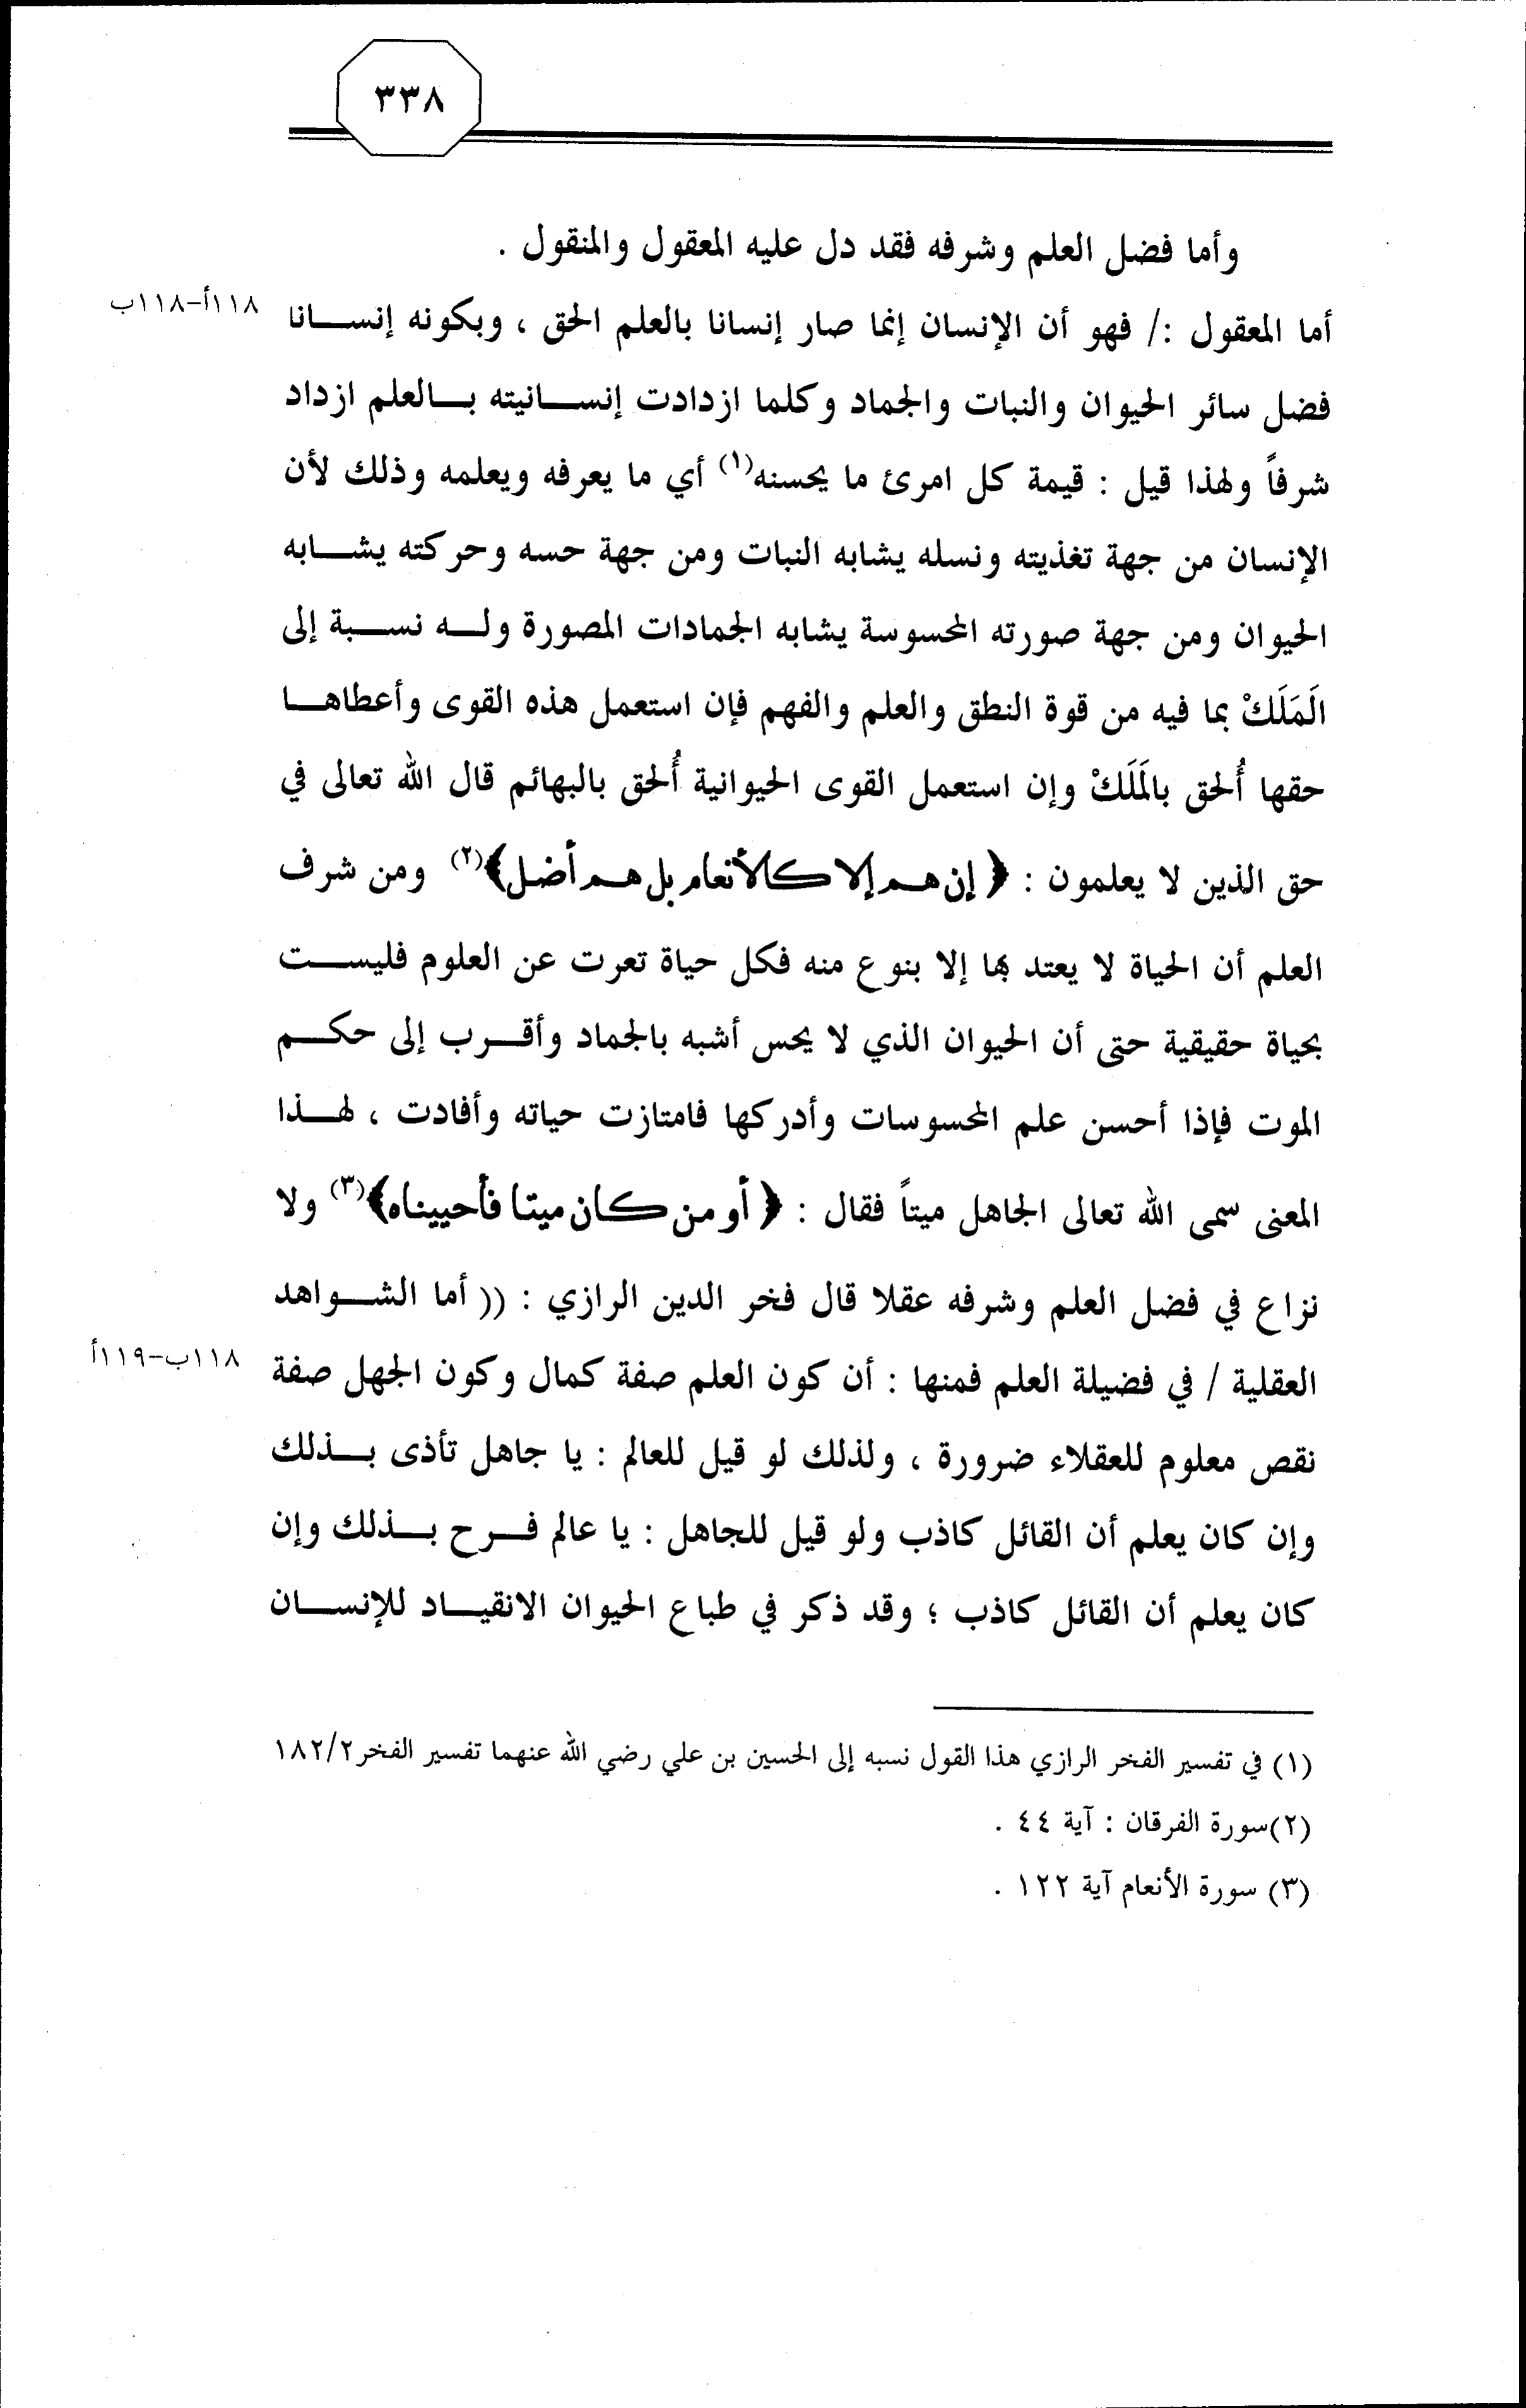 ٣٣٨
وأما فضل العلم وشرفه فقد دل عليه المعقول والمنقول .
أما المعقول :/ فهو أن الإنسان إنما صار إنسانا بالعلم الحق ، وبكونه إنسانا
١١٨أ-١١٨ب
فضل سائر الحيوان والنبات والجماد وكلما ازدادت إنسانيته بالعلم ازداد
شرفاً ولهذا قيل : قيمة كل امرئ ما يحسنه(١) أي ما يعرفه ويعلمه وذلك لأن
الإنسان من جهة تغذيته ونسله يشابه النبات ومن جهة حسه وحركته يشابه
الحيوان ومن جهة صورته المحسوسة يشابه الجمادات المصورة وله نسبة إلى
الَمَلَكْ بما فيه من قوة النطق والعلم والفهم فإن استعمل هذه القوى وأعطاها
حقها أُلحق بالَمَلَكْ وإن استعمل القوى الحيوانية أُلحق بالبهائم قال الله تعالى في
حق الذين لا يعلمون : ﴿ إن هم إلا كالأنعام بل هم أضل﴾(٢) ومن شرف
العلم أن الحياة لا يعتد بها إلا بنوع منه فكل حياة تعرت عن العلوم فليست
بحياة حقيقية حتى أن الحيوان الذي لا يحس أشبه بالجماد وأقرب إلى حكم
الموت فإذا أحسن علم المحسوسات وأدركها فامتازت حياته وأفادت ، لهذا
المعنى سمى الله تعالى الجاهل ميتاً فقال : ﴿ أو من كان ميتا فأحييناه﴾(٣) ولا
نزاع في فضل العلم وشرفه عقلا قال فخر الدين الرازي : (( أما الشواهد
العقلية / في فضيلة العلم فمنها : أن كون العلم صفة كمال وكون الجهل صفة
١١٨ب-١١٩أ
نقص معلوم للعقلاء ضرورة ، ولذلك لو قيل للعالم : يا جاهل تأذى بذلك
وإن كان يعلم أن القائل كاذب ولو قيل للجاهل : يا عالم فرح بذلك وإن
كان يعلم أن القائل كاذب ؛ وقد ذكر في طباع الحيوان الانقياد للإنسان
(١) في تفسير الفخر الرازي هذا القول نسبه إلى الحسين بن علي رضي الله عنهما تفسير الفخر ١٨٢/٢
(٢)سورة الفرقان : آية ٤٤ .
(٣) سورة الأنعام آية ١٢٢ .